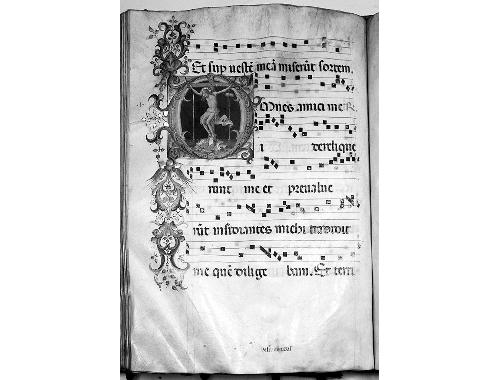 Et sup uestē meā miserūt sortem.
Mnes amici mei
i derelique
runt me et preualue
rūt insidiantes michi tradidit
me quē dilige bam. Et terri